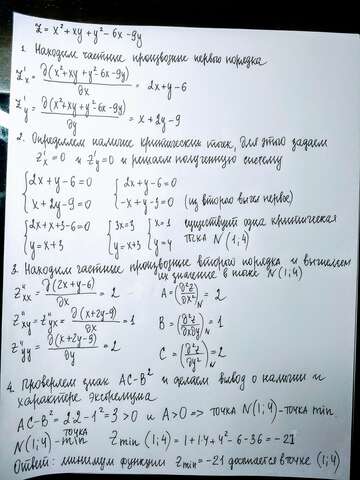 Z = x² + xy + y² - 6x - 9y
1. Находим частные производные первого порядка
Z'x = ∂(x²+xy+y²-6x-9y)/∂x = 2x+y-6
Z'y = ∂(x²+xy+y²-6x-9y)/∂y = x+2y-9
2. Определяем наличие критических точек, для этого зададим
Z'x = 0 и Z'y = 0 и решаем полученную систему
{2x+y-6=0 {2x+y-6=0
{x+2y-9=0 {-x+y-3=0 (из второго вычли первое)
{2x+x+3-6=0 {3x=3 {x=1 существует одна критическая
{y=x+3 {y=x+3 {y=4 точка N(1;4)
3. Находим частные производные второго порядка и вычисляем
их значение в точке N(1;4)
Z''xx = ∂(2x+y-6)/∂x = 2 A = (∂²z/∂x²)N = 2
Z''xy = Z''yx = ∂(x+2y-9)/∂x = 1 B = (∂²z/∂x∂y)N = 1
Z''yy = ∂(x+2y-9)/∂y = 2 C = (∂²z/∂y²)N = 2
4. Проверяем знак AC-B² и делаем вывод о наличии и
характере экстремума
AC-B² = 2·2-1² = 3 > 0 и A>0 => точка N(1;4) - точка min
N(1;4) - точка min Zmin (1;4) = 1+1·4+4²-6-36 = -21
Ответ: минимум функции Zmin = -21 достигается в точке (1;4)